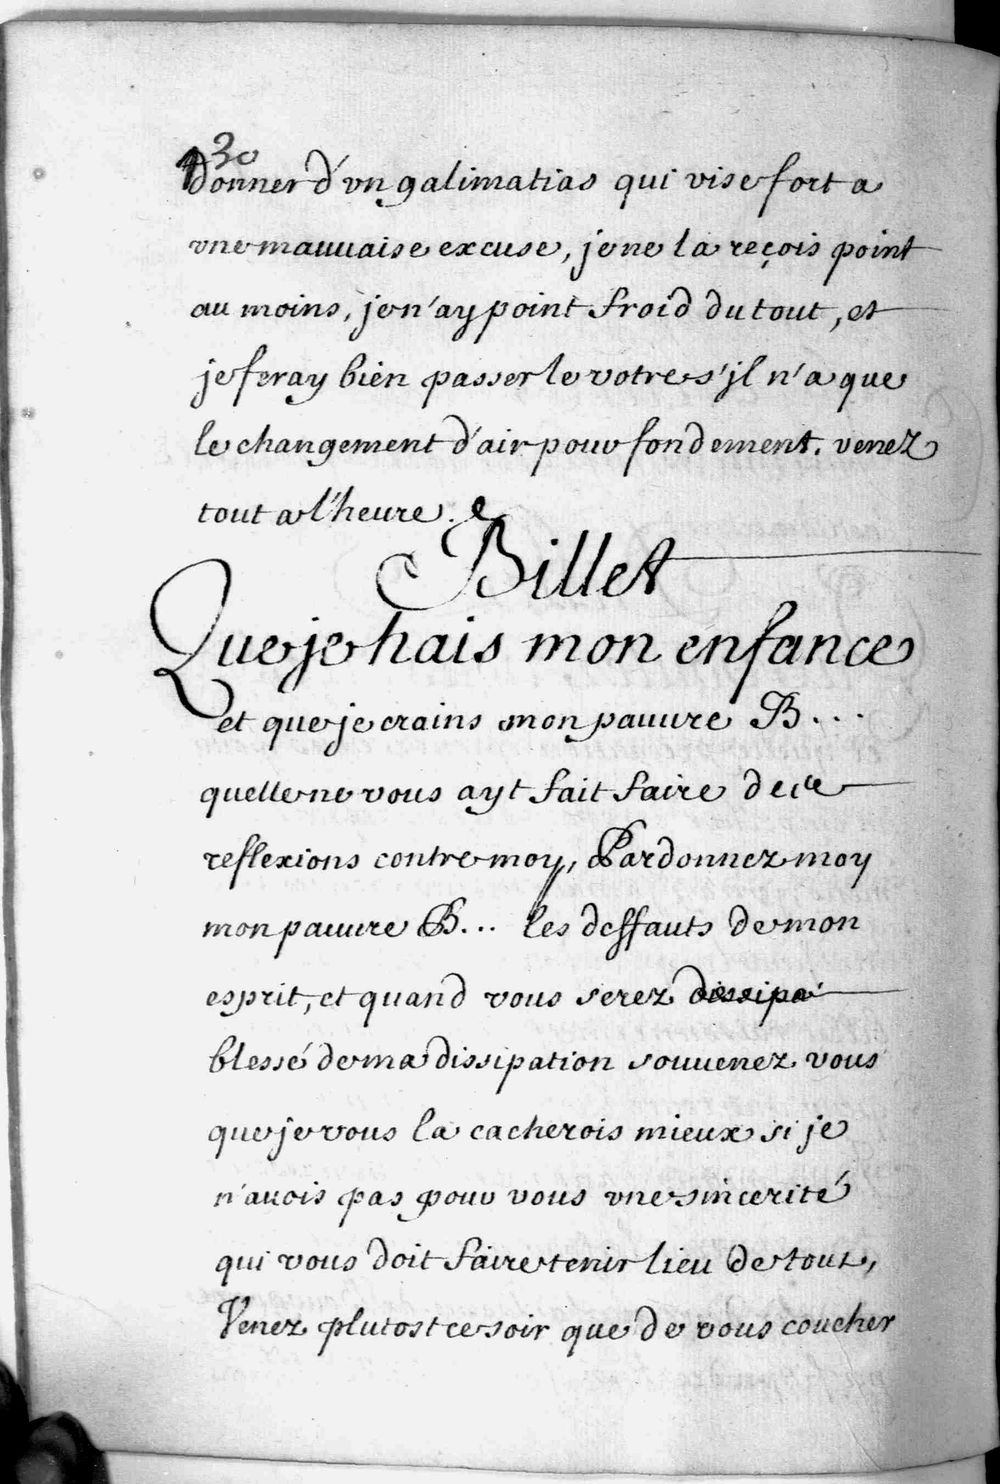 30
donner d'vn galimatias qui vise fort a
vne mauuaise excuse, je ne la reçois point
au moins, je n'ay point froid du tout, et
je feray bien passer le votre s'jl n'a que
le changement d'air pour fondement. venez
tout a l'heure.
Billet
Que je hais mon enfance
et que je crains mon pauure B....
quelle ne vous ayt fait faire de ce
reflexions contre moy, Pardonnez moy
mon pauure B... les deffauts de mon
esprit, et quand vous serez dissipé
blessé de ma dissipation souuenez vous
que je vous la cacherois mieux si je
n'auois pas pour vous vne sincerité
qui vous doit faire tenir lieu de tout,
Venez plutost ce soir que de vous coucher